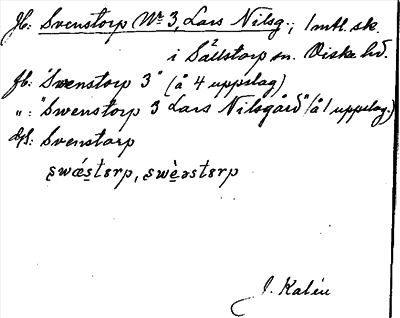 Jb: Svenstorp No 3, Lars Nilsg.; 1 mtl. sk.
i Sällstorp sn. Viske hd.
fb: "Svenstorp 3" (å 4 uppslag)
": "Swenstorp 3 Lars Nilsgård" (å 1 uppslag.)
ds: Svenstorp
J. Kalén